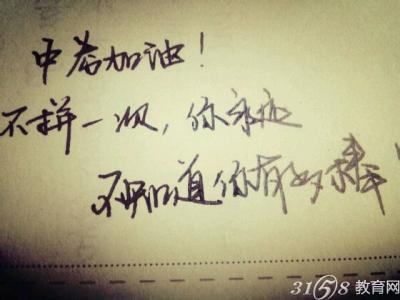 中考加油！
不拼一次，你永远
不知道你有多棒！
3158教育网